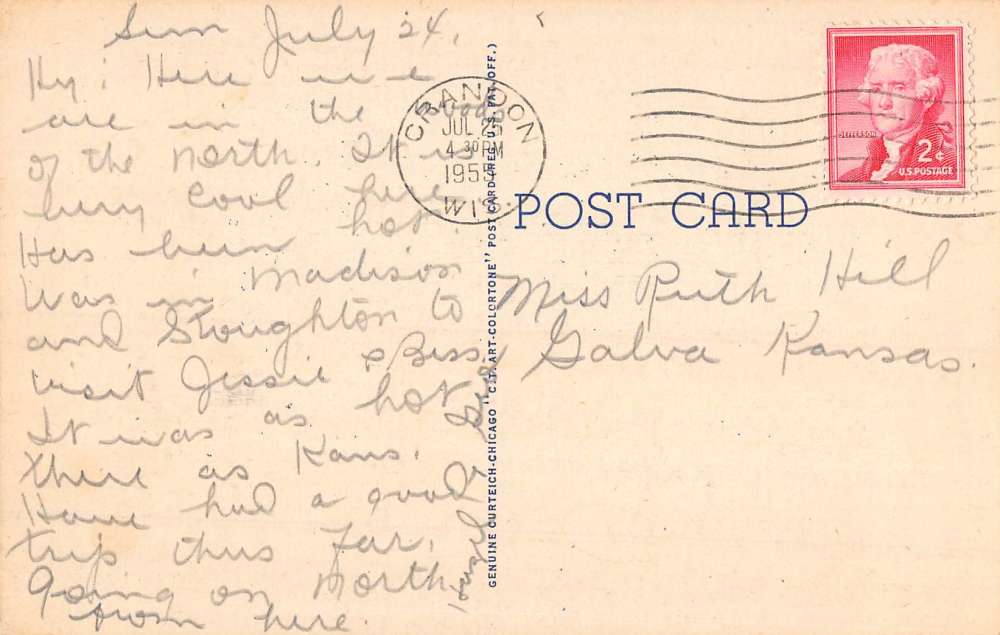 Sun July 24,
Hy! Here we
are in the woods
of the north. It is
very cool here
Has been hot.
Was in Madison
and Stoughton to
visit Jessie & Bess
It was as hot
there as Kans.
Have had a good
trip thus far.
Going on North
from here.
CRANDON
JUL 25
4 30 PM
1955
WIS.
GENUINE CURTEICH-CHICAGO "C.T. ART-COLORTONE" POST CARD (REG. U.S. PAT. OFF.)
POST CARD
Miss Ruth Hill
Galva Kansas.
JEFFERSON
2¢
U.S. POSTAGE